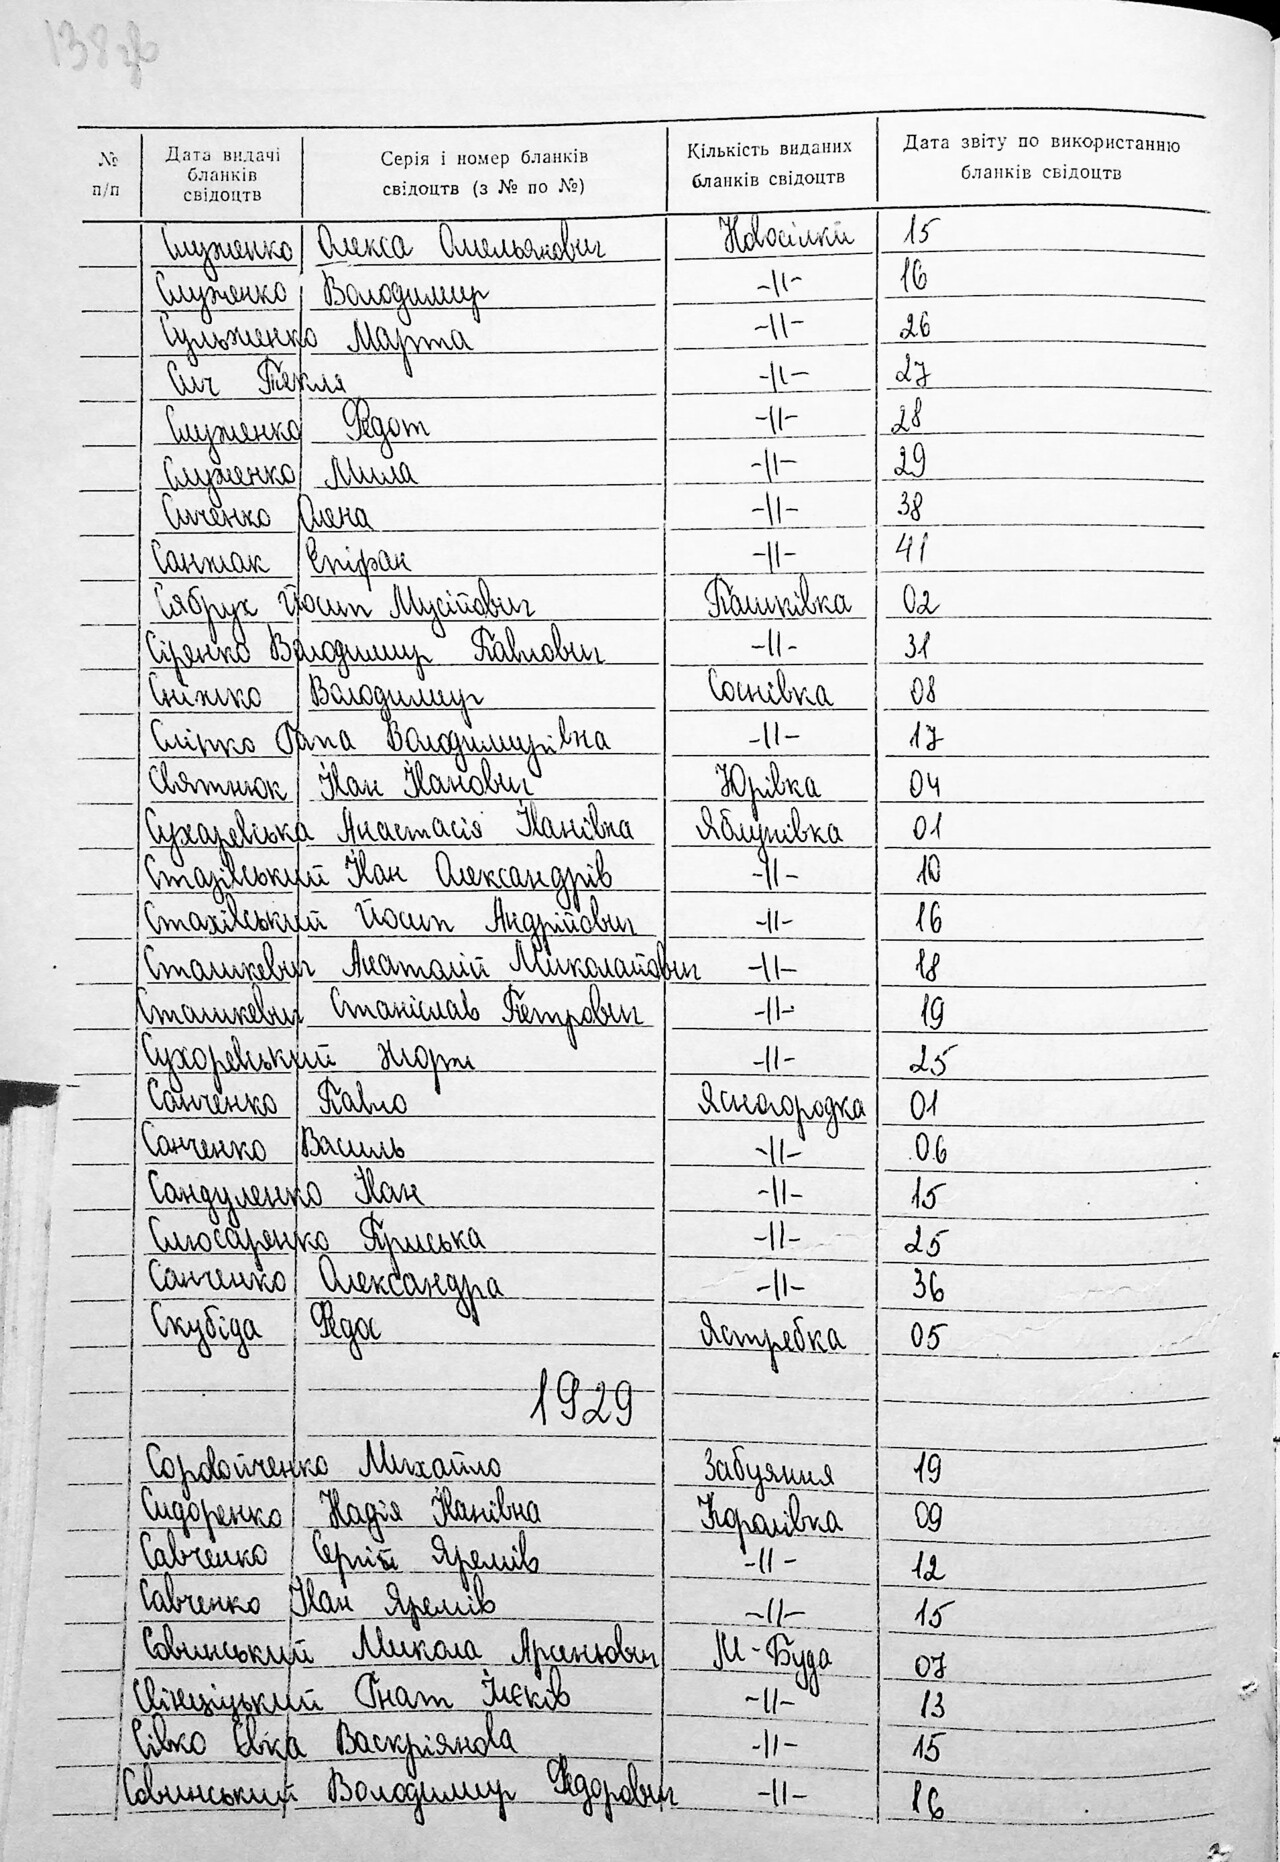 138 зв
№ п/п
Дата видачі бланків свідоцтв
Серія і номер бланків свідоцтв (з № по №)
Кількість виданих бланків свідоцтв
Дата звіту по використанню бланків свідоцтв
Служенко Олекса Омельянович Новосілки 15
Служенко Володимир -||- 16
Сульженко Марта -||- 26
Сич Текля -||- 27
Служенко Федот -||- 28
Служенко Мила -||- 29
Сиченко Олена -||- 38
Санжак Єпіфан -||- 41
Сябрук Йосип Мусійович Пашківка 02
Сіренко Володимир Павлович -||- 31
Сніжко Володимир Соснівка 08
Сліпко Гапа Володимирівна -||- 17
Святнюк Іван Іванович Юрівка 04
Сухаревська Анастасія Іванівна Яблунівка 01
Стахівський Іван Олександрів -||- 10
Стахівський Йосип Андрійович -||- 16
Сташкевич Анатолій Миколайович -||- 18
Сташкевич Станіслав Петрович -||- 19
Сухоревський Жорж -||- 25
Санченко Павло Ясногородка 01
Санченко Василь -||- 06
Сандуленко Іван -||- 15
Слюсаренко Приська -||- 25
Санченко Олександра -||- 36
Скубіда Федос Ястребка 05
1929
Михайло Забуяння 19
Сидоренко Надія Іванівна Королівка 09
Савченко Сергій Яремів -||- 12
Савченко Іван Яремів -||- 15
Совинський Микола Арсенович М-Буда 07
Гнат -||- 13
Сівко Євка Васкріянова -||- 15
Совинський Володимир Федорович -||- 16